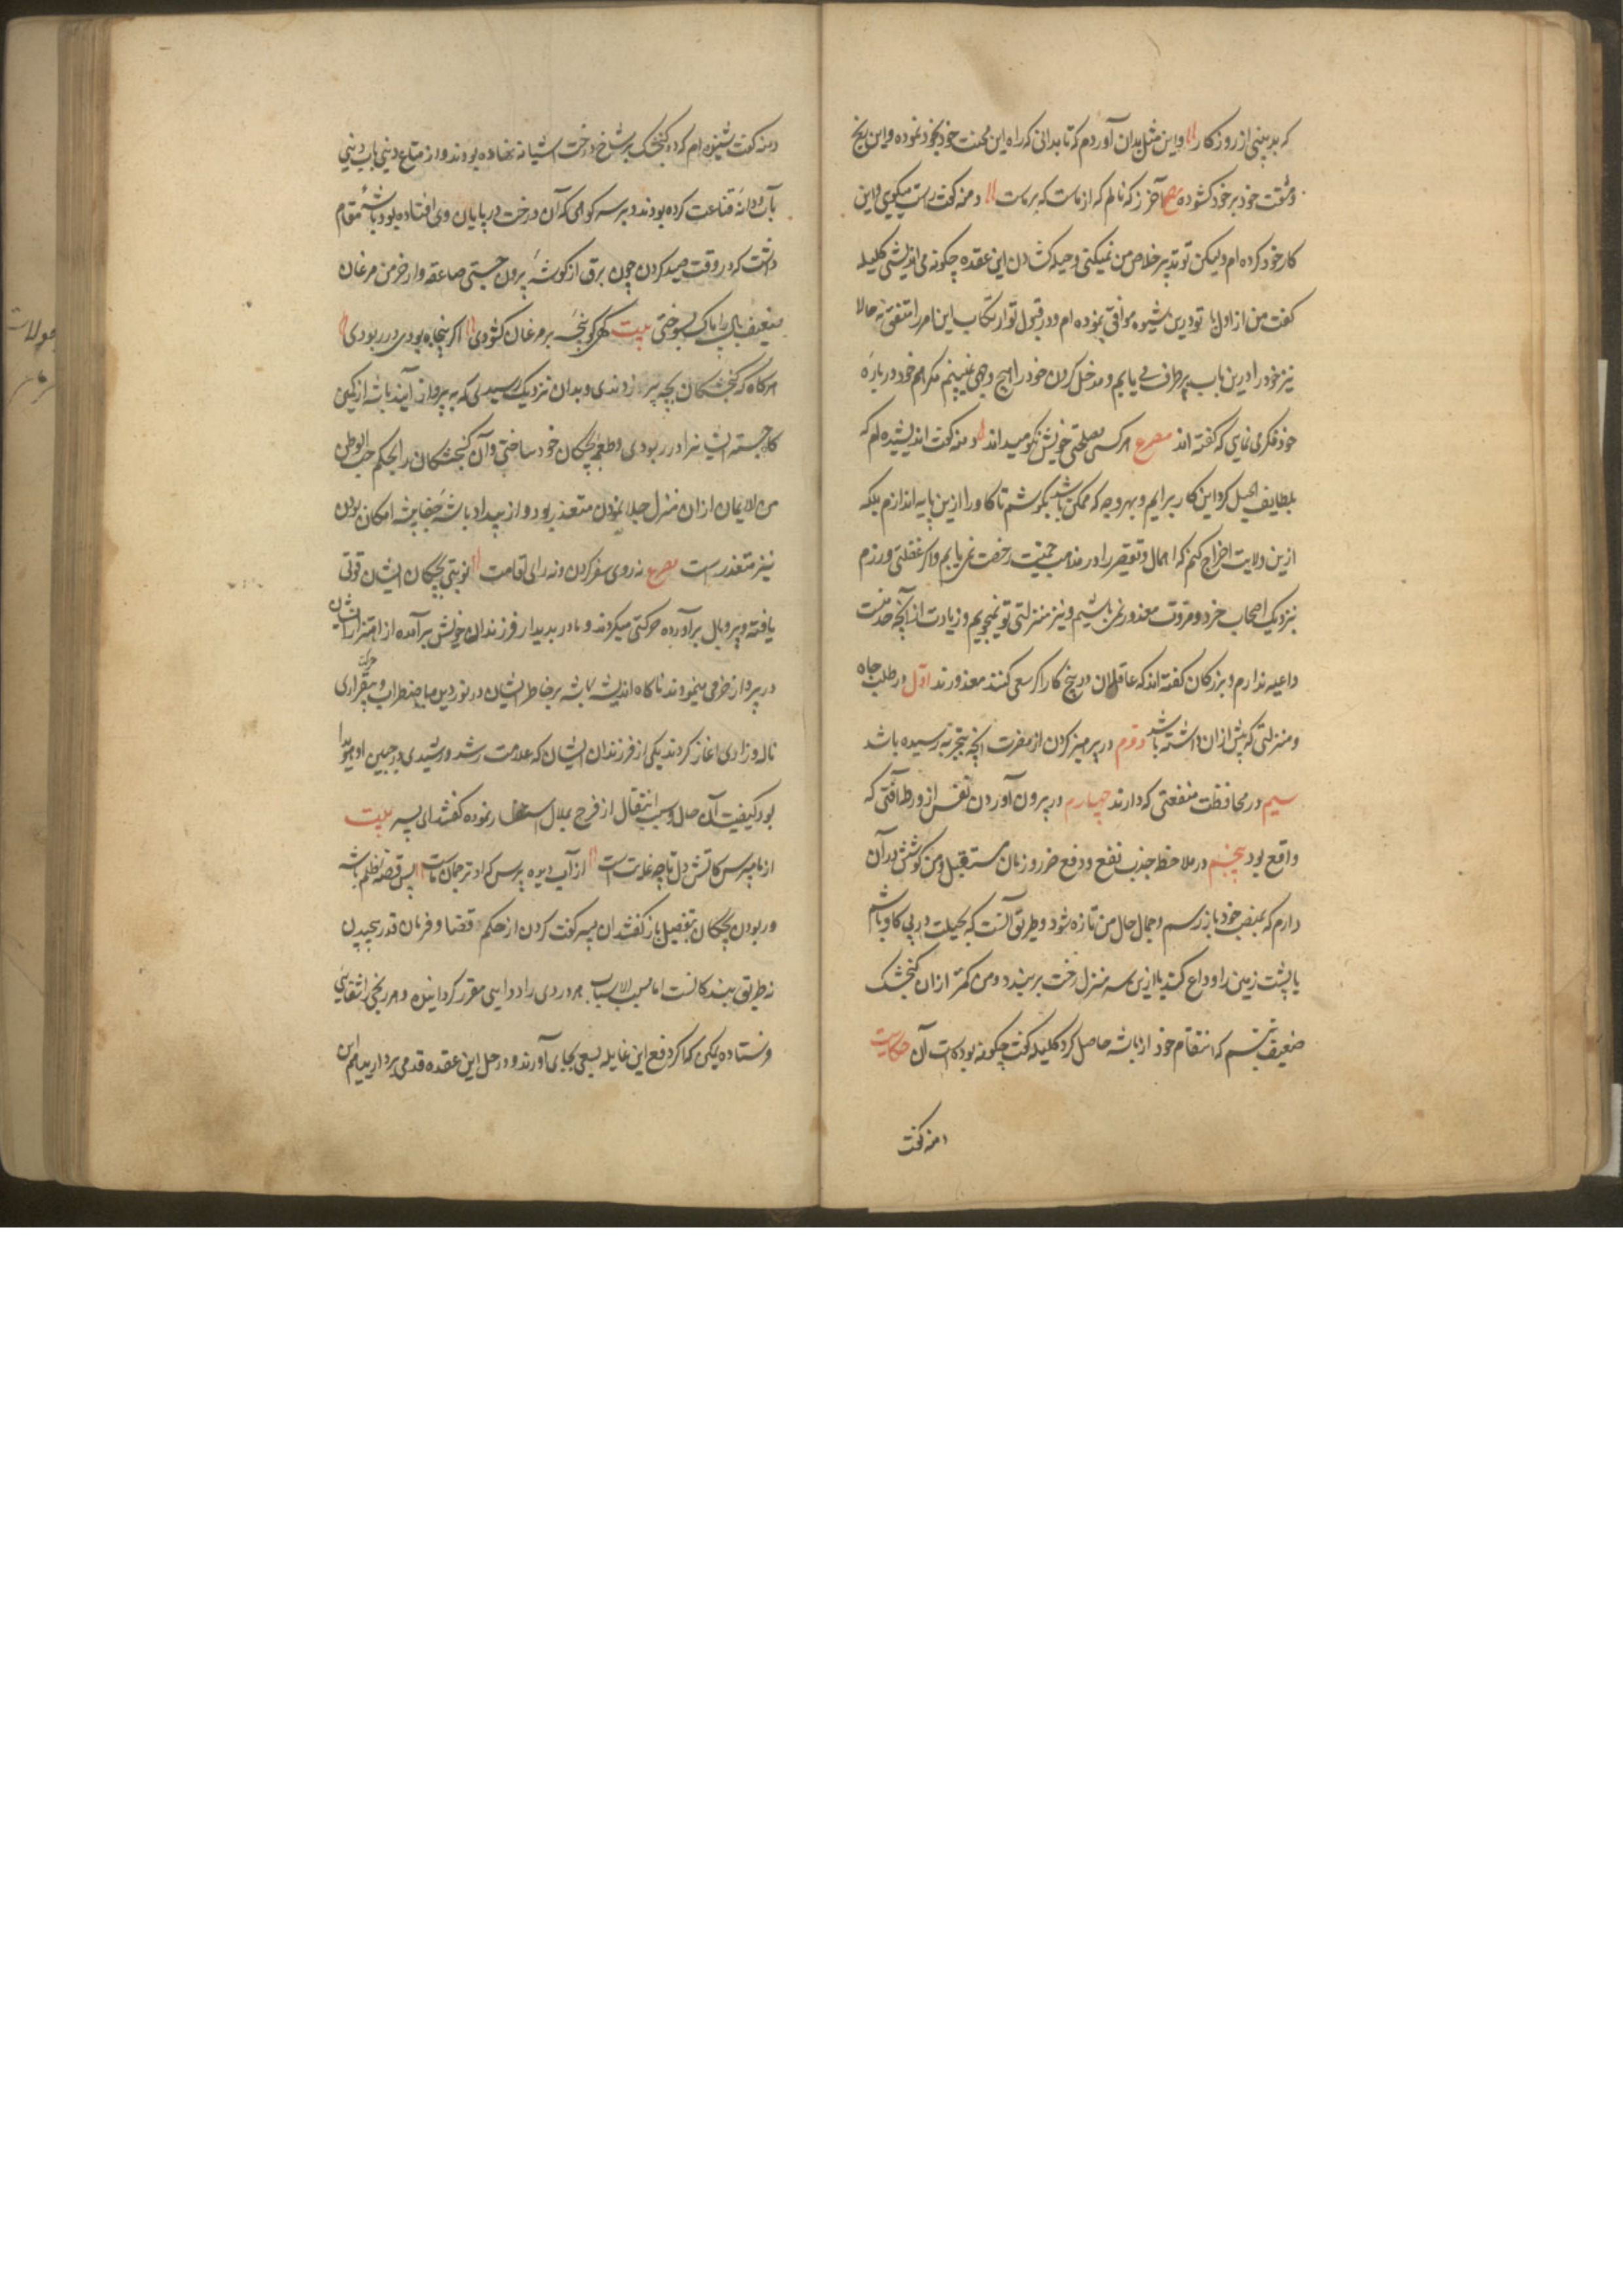 که بد بینی از روزگار وین مثل بدان آوردم که تا بدانی که راه این محنت خود بخود نموده و این بیخ
مشقت خود بر خود کشوده مصرع آخر ز که نالم که از ماست که بر ماست دمنه کفت راست میکویی و این
کار خود کرده ام ولیکن تو تدبیر خلاص من نمیکنی و حیله کشادن این عقده چکونه می اندیشی کلیله
کفت من از اول با تو درین شیوه موافق نبوده ام و در قبول تو ارتکاب این امر را متفق نه حالا
نیز خود را درین باب بر طرف می یابم و مدخل کردن خود را هیچ وجهی نمی بینم مکر هم خود در باره
خود فکری نمایی که کفته اند مصرع هر کسی مصلحت خویش نکو میداند دمنه کفت اندیشیده ام که
بلطایف الحیل کرد این کار برایم و بهر وجه که ممکن باشد بکوشم تا کاو را ازین پایه اندازم بلکه
ازین ولایت اخراج کنم که اهمال و تقصیر را در مذهب حمیت رخصت نمی یابم و اکر غفلتی ورزم
نزدیک اصحاب خرد و مروت معذور نمی باشیم و نیز منزلتی تو نمیجویم و زیادت از آنچه حد منست
داعیه ندارم و بزرکان کفته اند که عاقلان در پنج کار اکر سعی کنند معذورند اول در طلب جاه
و منزلتی که پیش ازان داشته باشد دوم در پرهیز کردن از مضرت آنچه بتجربه رسیده باشد
سیم در محافظت منفعتی که دارند چهارم در بیرون آوردن نفس از ورطه آفتی که
واقع بود پنجم در ملاحظه جذب نفع و دفع ضرر و زمان مستقبل و من کوشش در آن
دارم که بمنصب خود باز رسم و جمال حال من تازه شود و طریق آنست که بحیلت در پی کاو باشم
یا پشت زمین را وداع کند یا ازین سر منزل رخت بر بندد و من کمتر ازان کنجشک
ضعیف نیستم که انتقام خود از باشه حاصل کرد کلیله کفت چکونه بوده است آن حکایت
دمنه کفت
دمنه کفت شنیده ام که دو کنجشک بر شاخ درخت آشیانه نهاده بودند و از متاع دنیی
بآب و دانه قناعت کرده بودند و بر سر کوهی که آن درخت در پایان وی افتاده بود باشه مقام
داشت که در وقت صید کردن چون برق از کوشه بیرون جستی صاعقه وار خرمن مرغان
ضعیف بال را پاک بسوختی بیت کهی کو پنجه بر مرغان کشودی اکر پنجاه بودی در ربودی
هر کاه که کنجشکان بچه برآوردندی و بدان نزدیک رسیدی که به پرواز آیند باشه از کمین
کاه جسته ایشانرا در ربودی و طعمه بچکان خود ساختی و آن کنجشکان را بحکم حب الوطن
من الایمان از ان منزل جلا نمودن متعذر بود و از بیداد باشه جفا پیشه امکان بودن
نیز متعذر است مصرع نه روی سفر کردن و نه رای اقامت نوبتی بچکان ایشان قوتی
یافته و پر و بال برآورده حرکتی میکردند و مادر پدر بدیدار فرزندان خویش برآمده از اهتزاز ایشان
در پرواز خرمی مینمودند ناکاه اندیشه باشه بر خاطر ایشان در اضطراب و بیقراری
ناله و زاری آغاز کردند یکی از فرزندان ایشان که علامت رشد و رشیدی در جبین او هویدا
بود کیفیت آن حال و سبب انتقال از فرح بملال استفسار نموده کفتند ای پسر بیت
از ما مپرس کاتش دل تا چه غایت است از آب دیده پرس که او ترجمان ماست پس قصه ظلم باشه
و ربودن بچکان بتفصیل باز کفتند آن پسر کفت کردن از حکم قضا و فرمان قدر پیچیدن
نه طریق بندکانست اما مسبب الاسباب هر دردی را دوایی مقرر کردانیده و هر رنجی را شفایی
فرستاده لیکن کما کر دفع این غایله سعی بجای آورند و در حل این عقده قدمی بردارید هم این